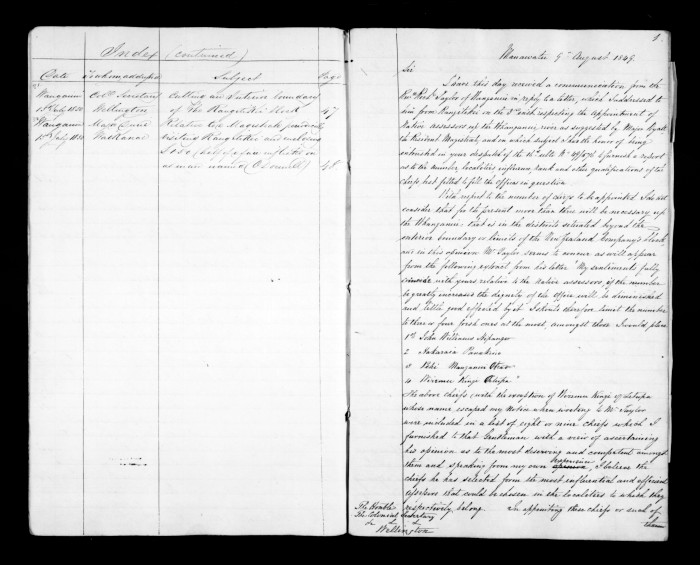 Index (continued)
Date To whom addressed Subject Page
Wanganui Coll. Secretary Cutting an interior boundary
1st July 1850 Wellington of the Rangitikei Block 47
Wanganui Major Durie Relative to a
1st July 1850 Waikanae visiting Rangitikei and
man named (O'Connell) 48
1.
Manawatu 9th August 1849
Sir
I have this day received a communication from the
Revd Richd Taylor of Wanganui in reply to a letter, which I addressed to
him from Rangitikei on the 2nd respecting the appointment of
Native assessors up the Wanganui river as suggested by Major Wyatt
the Resident Magistrate, and on which subject I had the honor of being
instructed in your despatch of the to furnish a report
as to the number, localities, influence, rank and other qualifications of the
chiefs best fitted to fill the offices in question
With respect to the number of chiefs to be appointed I do not
consider that for the present more than three will be necessary up
the Whanganui; that is in the districts situated beyond the
interior boundary or limits of the New Zealand Company's block
and in this opinion Mr Taylor seems to concur as will appear
from the following extract from his letter "My sentiments fully
coincide with yours relative to the Native assessors, if the number
be greatly increased the dignity of the office will be diminished
and little good effected by it. I should therefore limit the number
to three or four fresh ones at the most, amongst those I would place
1st John Williams
2
3
4 Wiremu Kingi
The above chiefs (with the exception of Wiremu Kingi of
whose name escaped my notice when writing to Mr Taylor
were included in a list of eight or nine chiefs which I
furnished to that Gentleman with a view of ascertaining
his opinion as to the most deserving and competent amongst
them and speaking from my own experience, I believe the
chiefs he has selected from the most influential and efficient
assessors that could be chosen in the localities to which they
respectively belong. In appointing these chiefs or such of
them
The Honble
The Colonial Secretary
Wellington